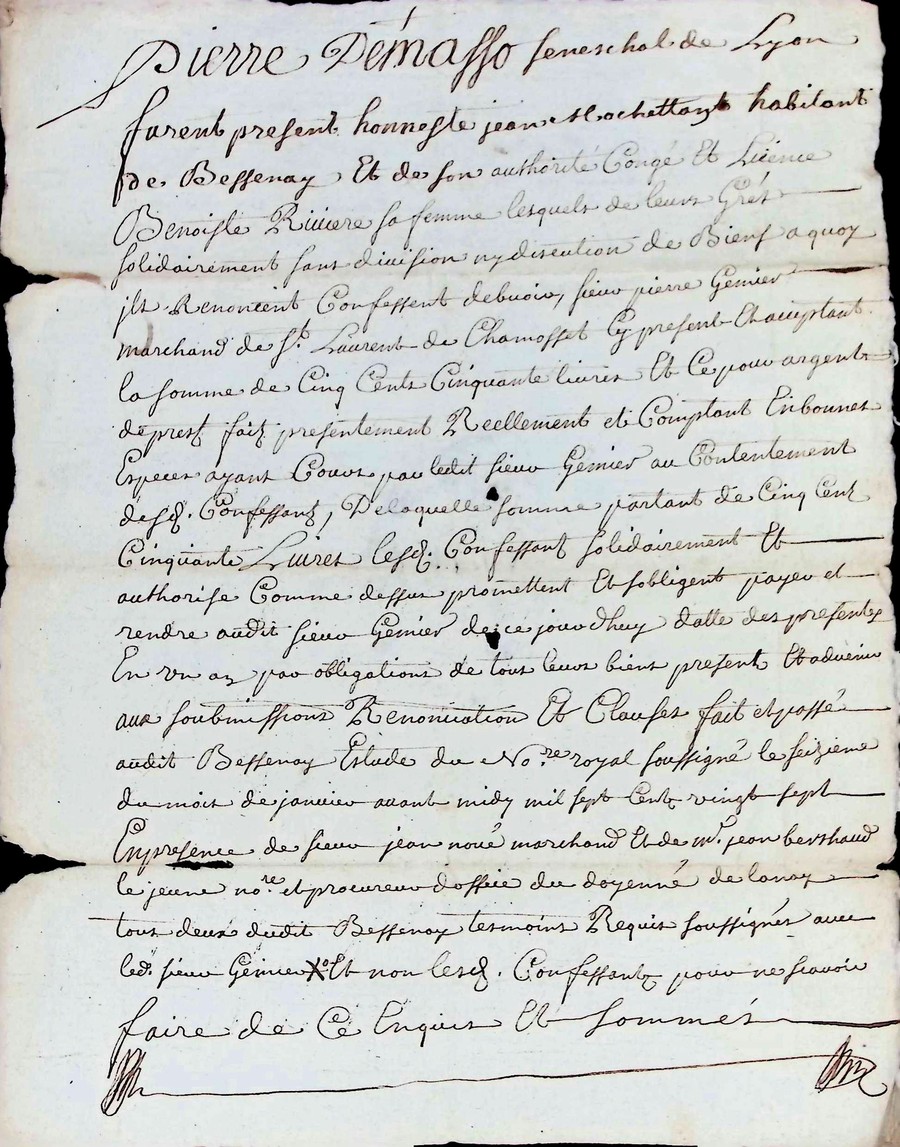 Pierre Démasso seneschal de Lyon
furent present honneste jean Rochettant habitant
de Bessenay Et de son authorité Congé Et Licence
Benoiste Riviere sa femme lesquels de leurs Gréz
solidairement sans division ny discution de Biens a quoy
jls Renoncent Confessent debvoir, sieur pierre Genier
marchand de St. Laurent de Chamosset Cy present Et acceptant
la somme de Cinq Cents Cinquante livres Et Ce pour argent
de prest fait presentement Reellement et Comptant En bonnes
Especes ayant Cours par ledit sieur Genier au Contentement
desd. Confessantz, De laquelle somme partant de Cinq Cent
Cinquante Livres lesd. Confessant solidairement Et
authorise Comme dessus promettent Et sobligent payer et
rendre audit sieur Genier de ce jourdhuy datte des presentes
En un an par obligations de tous leurs biens present Et advenir
aux soubmissions Renonciation Et Clauses fait et passé
audit Bessenay Estude du No.re royal soussigné le seizieme
du mois de janvier avant midy mil sept Centz vingt sept
En presence de sieur jean noué marchand Et de mr. jean berthaud
le jeune no.re et procureur doffice du doyenné de lanay
tous deux dudit Bessenay tesmoins Requis soussignés avec
led. sieur Genier Et non lesd. Confessantz pour ne scavoir
faire de Ce Enquis Et sommés